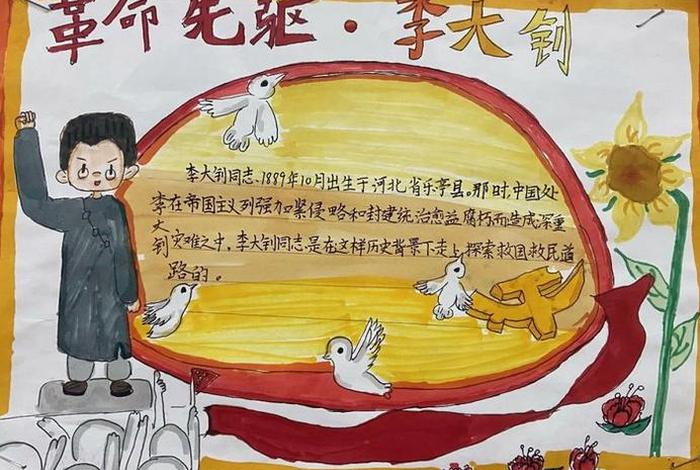 革命先驱·李大钊
李大钊同志、1889年10月出生于河北省乐亭县。那时中国处
在帝国主义列强加紧侵略和封建统治愈益腐朽而造成深重
灾难之中，李大钊同志是在这样历史背景下走上探索救国救民道
路的。
李
大
钊